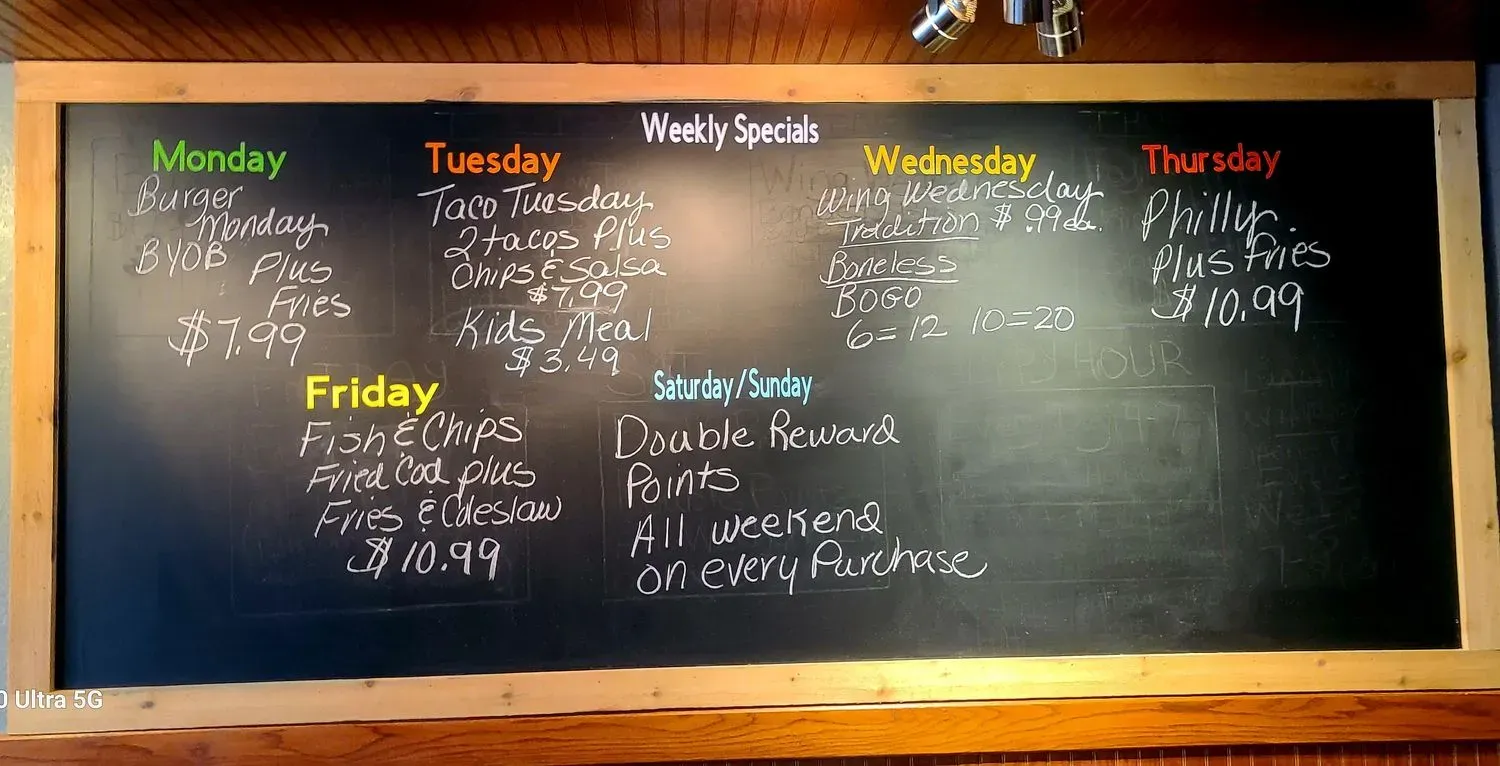 Weekly Specials
Monday
Burger
Monday
BYOB Plus
Fries
$7.99
Tuesday
Taco Tuesday
2 tacos Plus
Chips & Salsa
$7.99
Kids Meal
$3.49
Wednesday
Wing Wednesday
Tradition $.99ea.
Boneless
BOGO
6=12 10=20
Thursday
Philly
Plus Fries
$10.99
Friday
Fish & Chips
Fried Cod plus
Fries & Coleslaw
$10.99
Saturday/Sunday
Double Reward
Points
All weekend
on every Purchase
HOUR
4-7
0 Ultra 5G